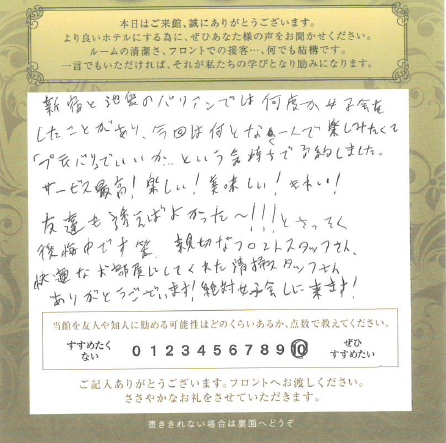 本日はご来館、誠にありがとうございます。
より良いホテルにする為に、ぜひあなた様の声をお聞かせください。
ルームの清潔さ、フロントでの接客…、何でも結構です。
一言でもいただければ、それが私たちの学びとなり励みになります。
新宿と池袋のバリアンでは何度か女子会を
したことがあり、今回は何となく一人で楽しみたくて
「プチバリでいいか…」という気持ちで予約しました。
サービス最高!楽しい!美味しい!きれい!
友達も誘えばよかった〜!!!とさっそく
後悔中です笑 親切なフロントスタッフさん、
快適なお部屋にしてくれた清掃スタッフさん
ありがとうございます!絶対女子会しに来ます!
当館を友人や知人に勧める可能性はどのくらいあるか、点数で教えてください。
すすめたくない 0 1 2 3 4 5 6 7 8 9 10 ぜひすすめたい
ご記入ありがとうございます。フロントへお渡しください。
ささやかなお礼をさせていただきます。
書ききれない場合は裏面へどうぞ